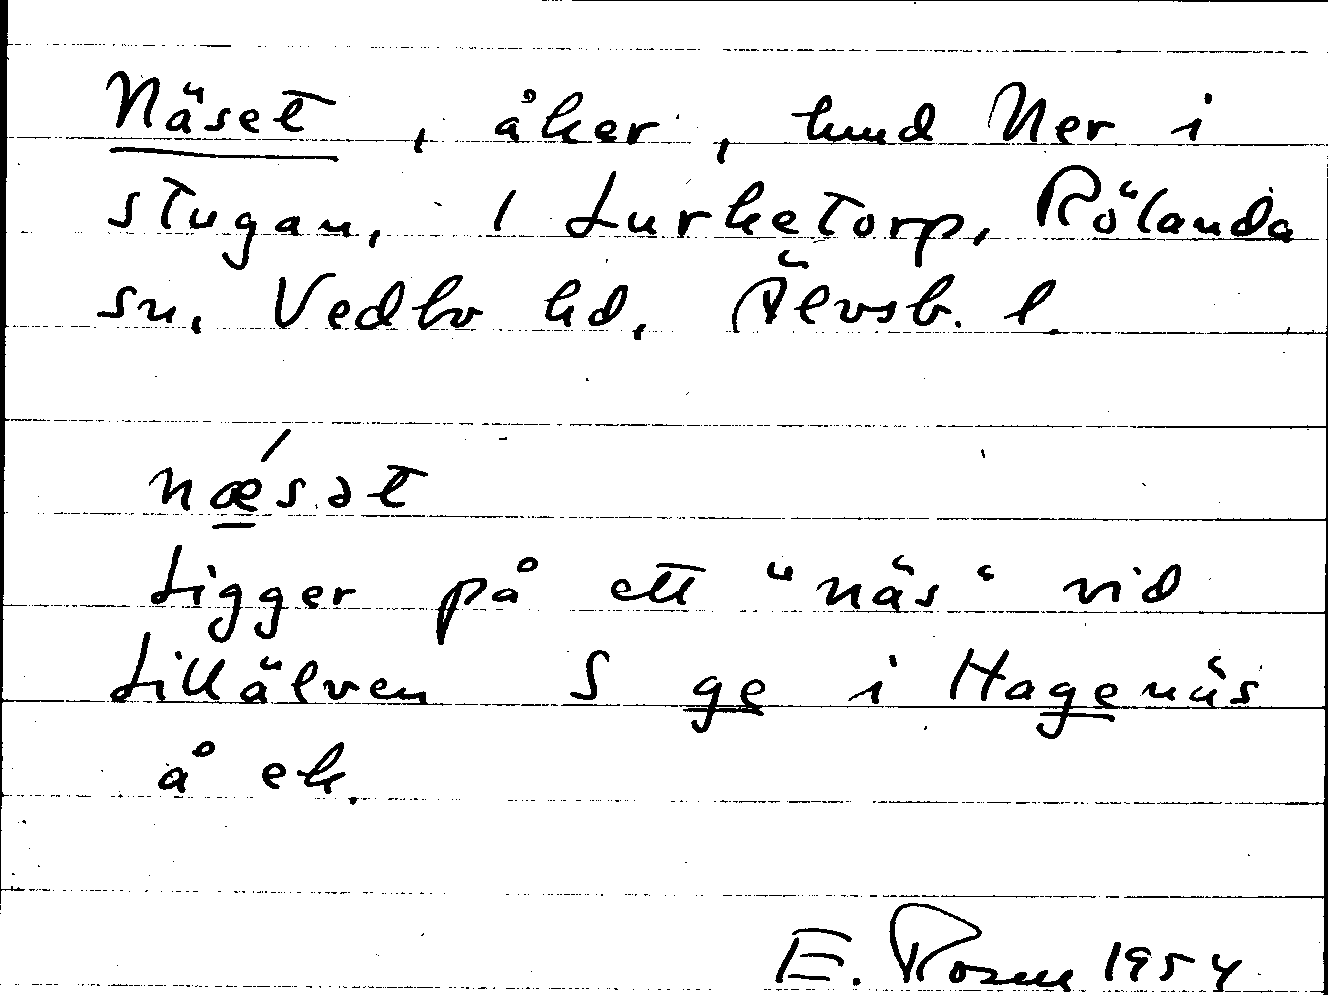 Näset, åker, hmd Ner i
stugan, 1 Lurketorp, Rölanda
sn, Vedbo hd, Älvsb. l.
nǽsət
Ligger på ett "näs" vid
Lillälven S ge i Hagenäs
å ek.
E. Rosen 1954